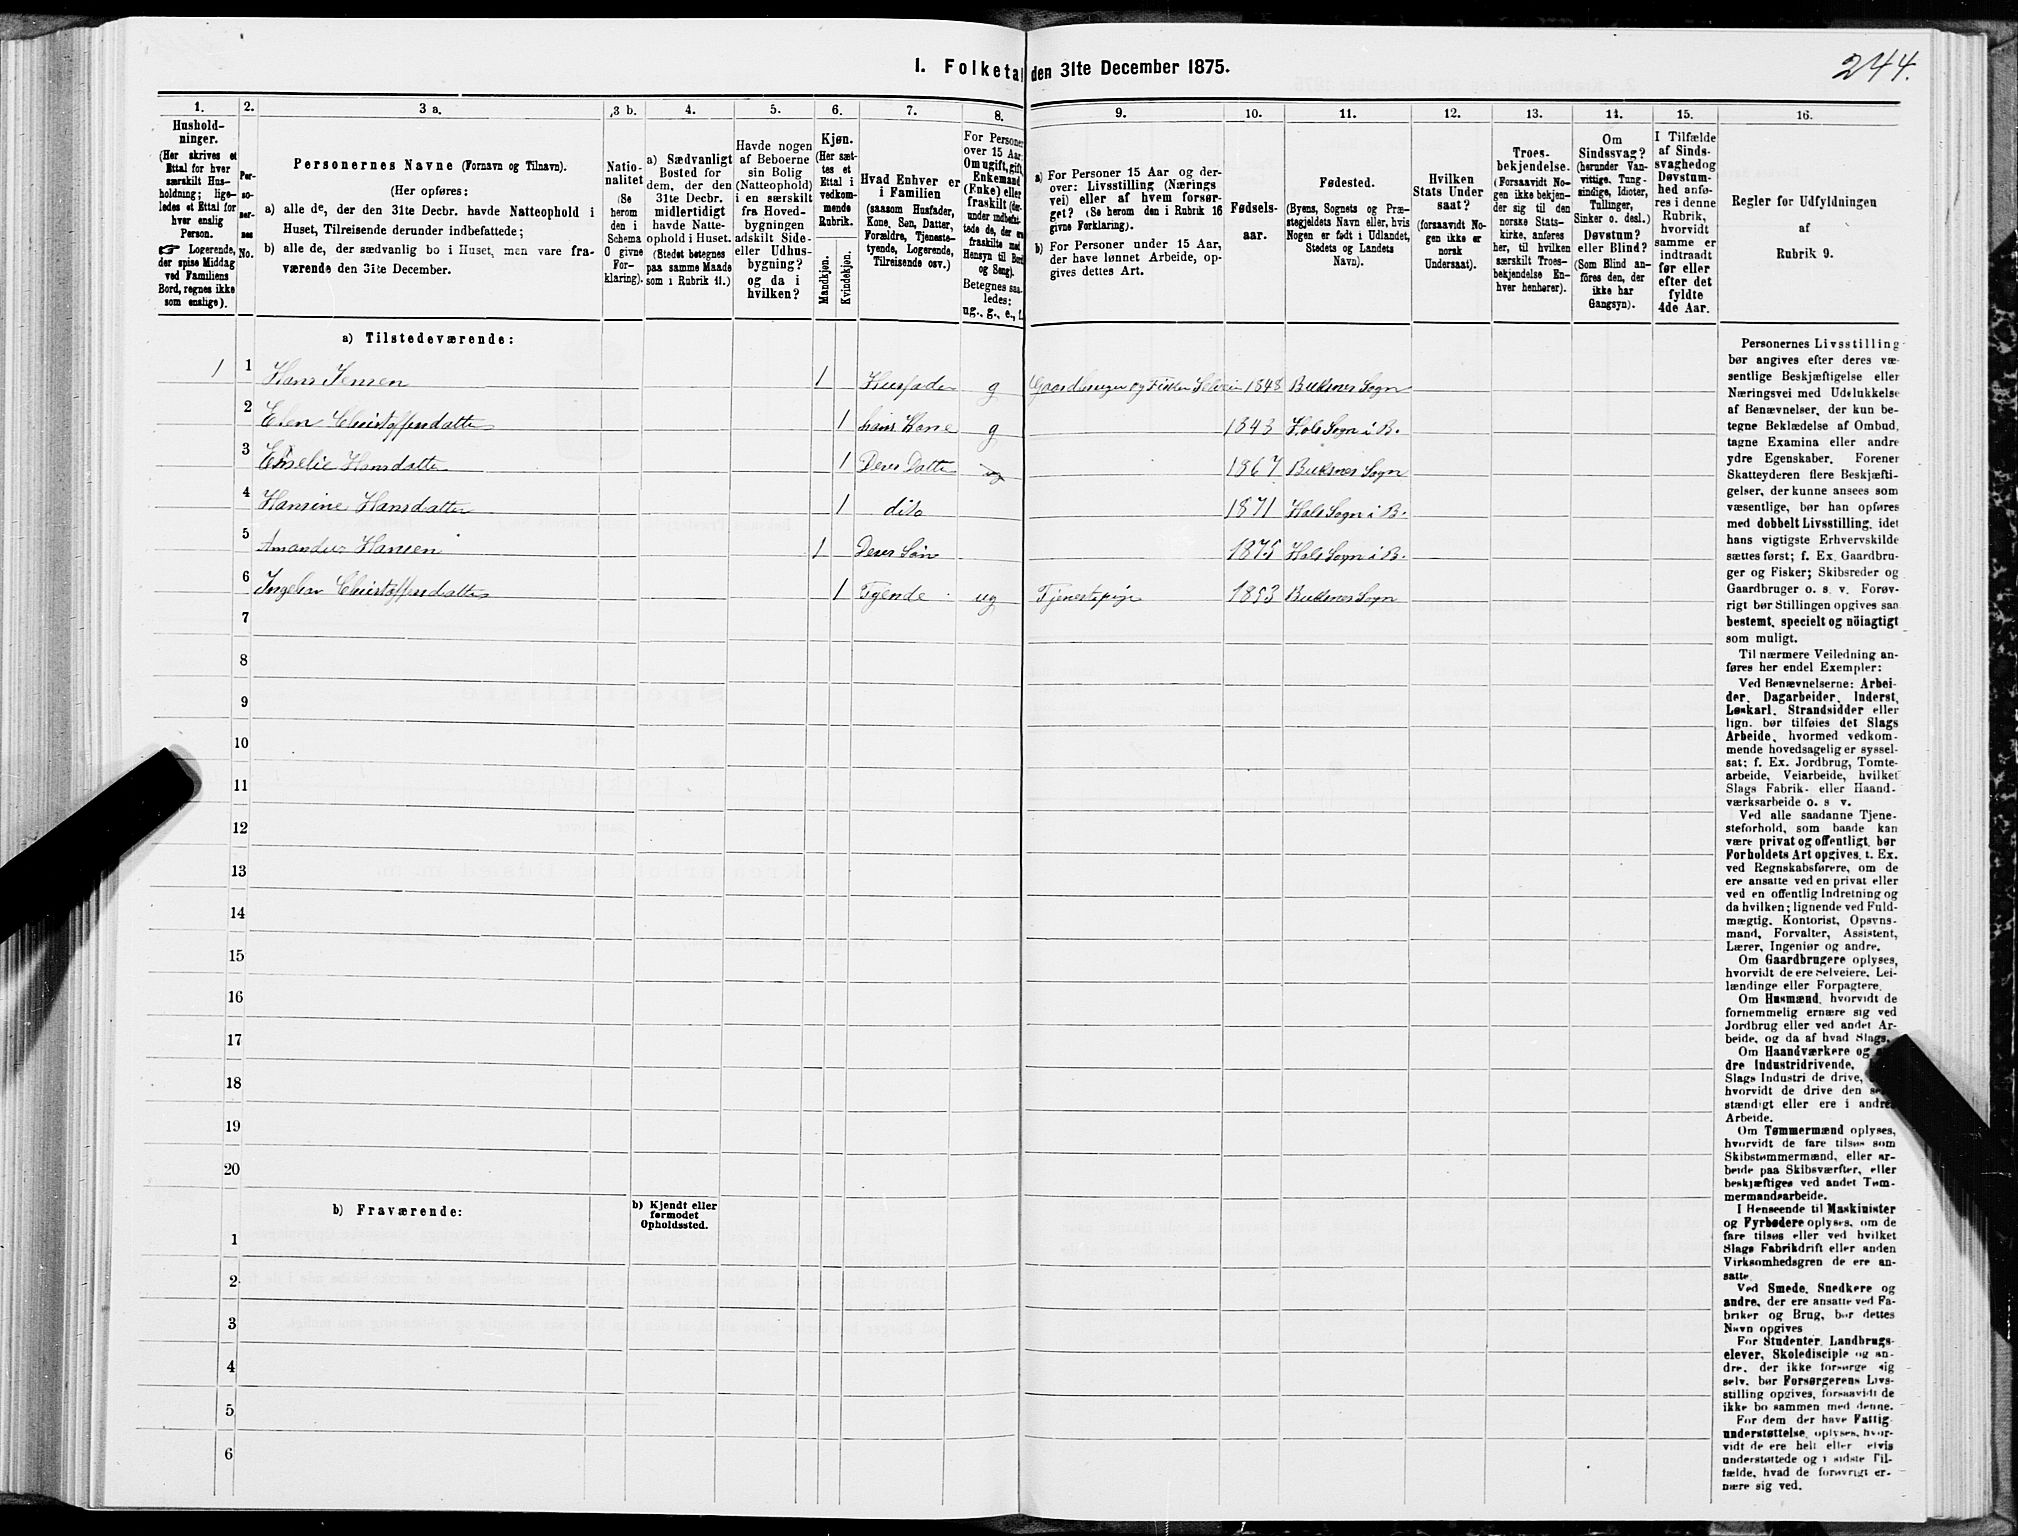 1. Folketal den 31te December 1875.
244.
1.
Hushold-
ninger.
(Her skrives et
Ettal for hver
særskilt Hus-
holdning; lige-
ledes et Ettal for
hver enslig
Person.
☞ Logerende,
der spise Middag
ved Familiens
Bord, regnes ikke
som enslige).
2.
Per-
so-
ner-
nes
No.
3 a.
Personernes Navne (Fornavn og Tilnavn).
(Her opføres:
a) alle de, der den 31te Decbr. havde Natteophold i
Huset, Tilreisende derunder indbefattede;
b) alle de, der sædvanlig bo i Huset, men vare fra-
værende den 31te December.
3 b.
Natio-
nalitet
(Se
herom
den i
Schema
O givne
For-
klaring).
4.
a) Sædvanligt
Bosted for
dem, der den
31te Decbr.
midlertidigt
havde Natte-
ophold i Huset.
(Stedet betegnes
paa samme Maade
som i Rubrik 11.)
5.
Havde nogen
af Beboerne
sin Bolig
(Natteophold)
i en særskilt
fra Hoved-
bygningen
adskilt Side-
eller Udhus-
bygning?
og da i
hvilken?
6.
Kjøn.
(Her sæt-
tes et
Ettal i
vedkom-
mende
Rubrik.
Mandkjøn.
Kvindekjøn.
7.
Hvad Enhver er
i Familien
(saasom Husfader,
Kone, Søn, Datter,
Forældre, Tjeneste-
tyende, Logerende,
Tilreisende osv.)
8.
For Personer
over 15 Aar:
Om ugift, gift,
Enkemand
(Enke) eller
fraskilt (der-
under indbefat-
tede de, der ere
fraskilte med
Hensyn til Bord
og Seng).
Betegnes saa-
ledes:
ug., g., e., f.
9.
a) For Personer 15 Aar og der-
over: Livsstilling (Nærings
vei) eller af hvem forsør-
get? (Se herom den i Rubrik 16
givne Forklaring).
b) For Personer under 15 Aar,
der have lønnet Arbeide, op-
gives dettes Art.
10.
Fødsels-
aar.
11.
Fødested.
(Byens, Sognets og Præ-
stegjeldets Navn eller, hvis
Nogen er født i Udlandet,
Stedets og Landets
Navn).
12.
Hvilken
Stats Under
saat?
(forsaavidt No-
gen ikke er
norsk
Undersaat).
13.
Troes-
bekjendelse.
(Forsaavidt No-
gen ikke bekjen-
der sig til den
norske Stats-
kirke, anføres
her, til hvilken
særskilt Troes-
bekjendelse En-
hver henhører).
14.
Om
Sindssvag?
(herunder Van-
vittige, Tung-
sindige, Idioter,
Tullinger,
Sinker o. desl.)
Døvstum?
eller Blind?
(Som Blind an-
føres den, der
ikke har
Gangsyn).
15.
I Tilfælde
af Sinds-
svaghed og
Døvstum-
hed anfø-
res i denne
Rubrik,
hvorvidt
samme er
indtraadt
før eller
efter det
fyldte
4de Aar.
16.
Regler for Udfyldningen
af
Rubrik 9.
a) Tilstedeværende:
1 1 Hans Jensen 1 Husfader g Gaardbruger og Fisker Selveier 1848 Buksnes Sogn
2 Elen Christoffersdatter 1 hans Kone g 1843 Hols Sogn i B.
3 Emelie Hansdatter 1 Deres Datter ug 1867 Buksnes Sogn
4 Hansine Hansdatter 1 dito 1871 Hols Sogn i B.
5 Amandus Hansen 1 Deres Søn 1875 Hols Sogn i B.
6 Christoffersdatter 1 Tyende ug Tjenestepige 1853 Buksnes Sogn
7
8
9
10
11
12
13
14
15
16
17
18
19
20
b) Fraværende:
b) Kjendt eller
formodet
Opholdssted.
1
2
3
4
5
6
Personernes Livsstilling
bør angives efter deres væ-
sentlige Beskjæftigelse eller
Næringsvei med Udelukkelse
af Benævnelser, der kun be-
tegne Beklædelse af Ombud,
tagne Examina eller andre
ydre Egenskaber. Forener
Skatteyderen flere Beskjæfti-
gelser, der kunne ansees som
væsentlige, bør han opføres
med dobbelt Livsstilling, idet
hans vigtigste Erhvervskilde
sættes først; f. Ex. Gaardbru-
ger og Fisker; Skibsreder og
Gaardbruger o. s. v. Forøv-
rigt bør Stillingen opgives saa
bestemt, specielt og nöiagtigt
som muligt.
Til nærmere Veiledning an-
føres her endel Exempler:
Ved Benævnelserne: Arbei-
der, Dagarbeider, Inderst,
Løskarl, Strandsidder eller
lign. bør tilføies det Slags
Arbeide, hvormed vedkom-
mende hovedsagelig er syssel-
sat; f. Ex. Jordbrug, Tomte-
arbeide, Veiarbeide, hvilket
Slags Fabrik- eller Haand-
værksarbeide o. s v.
Ved alle saadanne Tjene-
steforhold, som baade kan
være privat og offentligt, bør
Forholdets Art opgives, t. Ex.
ved Regnskabsførere, om de
ere ansatte ved en privat eller
ved en offentlig Indretning og
da hvilken; lignende ved Fuld-
mægtig, Kontorist, Opsyns-
mand, Forvalter, Assistent,
Lærer, Ingeniør og andre.
Om Gaardbrugere oplyses,
hvorvidt de ere Selveiere, Lei-
lændinge eller Forpagtere.
Om Husmænd, hvorvidt de
fornemmelig ernære sig ved
Jordbrug eller ved andet Ar-
beide, og da af hvad Slags.
Om Haandværkere og
dre Industridrivende,
Slags Industri de drive,
hvorvidt de drive den
stændigt eller ere i andres
Arbeide.
Om Tømmermænd oplyses,
hvorvidt de fare tilsøs som
Skibstømmermænd, eller ar-
beide paa Skibsværfter, eller
beskjæftiges ved andet Tøm-
mermandsarbeide.
I Henseende til Maskinister
og Fyrbødere oplyses, om de
fare tilsøs eller ved hvilket
Slags Fabrikdrift eller anden
Virksomhedsgren de ere an-
satte.
Ved Smede, Snedkere og
andre, der ere ansatte ved Fa-
briker og Brug, bør dettes
Navn opgives
For Studenter, Landbrugs-
elever, Skoledisciple og an-
dre, der ikke forsørge sig
selv, bør Forsørgerens Livs-
stilling opgives, forsaavidt de
ikke bo sammen med denne.
For dem, der have Fattig-
understøttelse, oplyses, hvor-
vidt de ere helt eller elvis
understøttede og i sidste Til-
fælde, hvad de forøvrigt er-
nære sig ved.